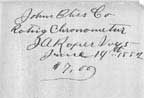 John Bliss Co
Rating Chronometer
J A Roper Voys
June 14th 1884
$7.00